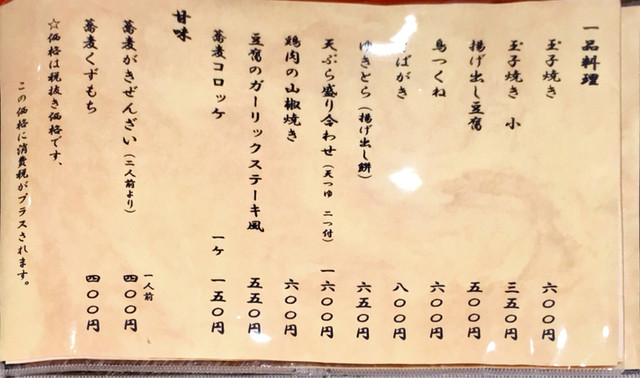 一品料理
玉子焼き 六〇〇円
玉子焼き 小 三五〇円
揚げ出し豆腐 五〇〇円
鳥つくね 六〇〇円
ばがき 八〇〇円
ゆきとら(揚げ出し餅) 六五〇円
天ぷら盛り合わせ(天つゆ 二つ付) 一六〇〇円
鶏肉の山椒焼き 六〇〇円
豆腐のガーリックステーキ風 五五〇円
蕎麦コロッケ 一ケ 一五〇円
甘味
蕎麦がきぜんざい(二人前より) 一人前 四〇〇円
蕎麦くずもち 四〇〇円
☆価格は税抜き価格です。
この価格に消費税がプラスされます。